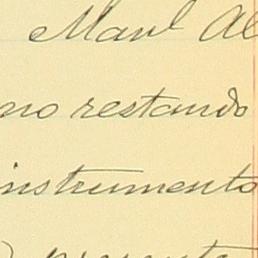 Manl Al
no restando
instrumento
presente